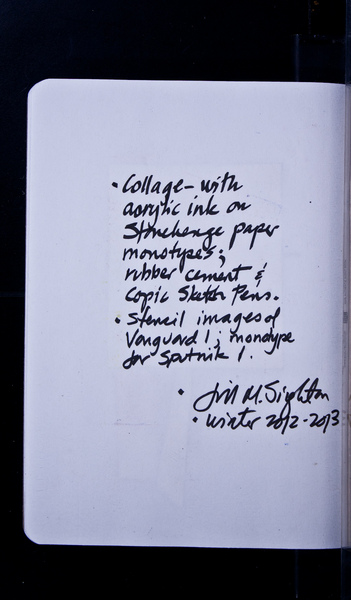 • Collage - with
acrylic ink on
Stonehenge paper
monotypes;
rubber cement &
Copic Sketch Pens.
• Stencil images of
Vanguard 1; monotype
for Sputnik 1.
• Jill M.
• Winter 2012-2013